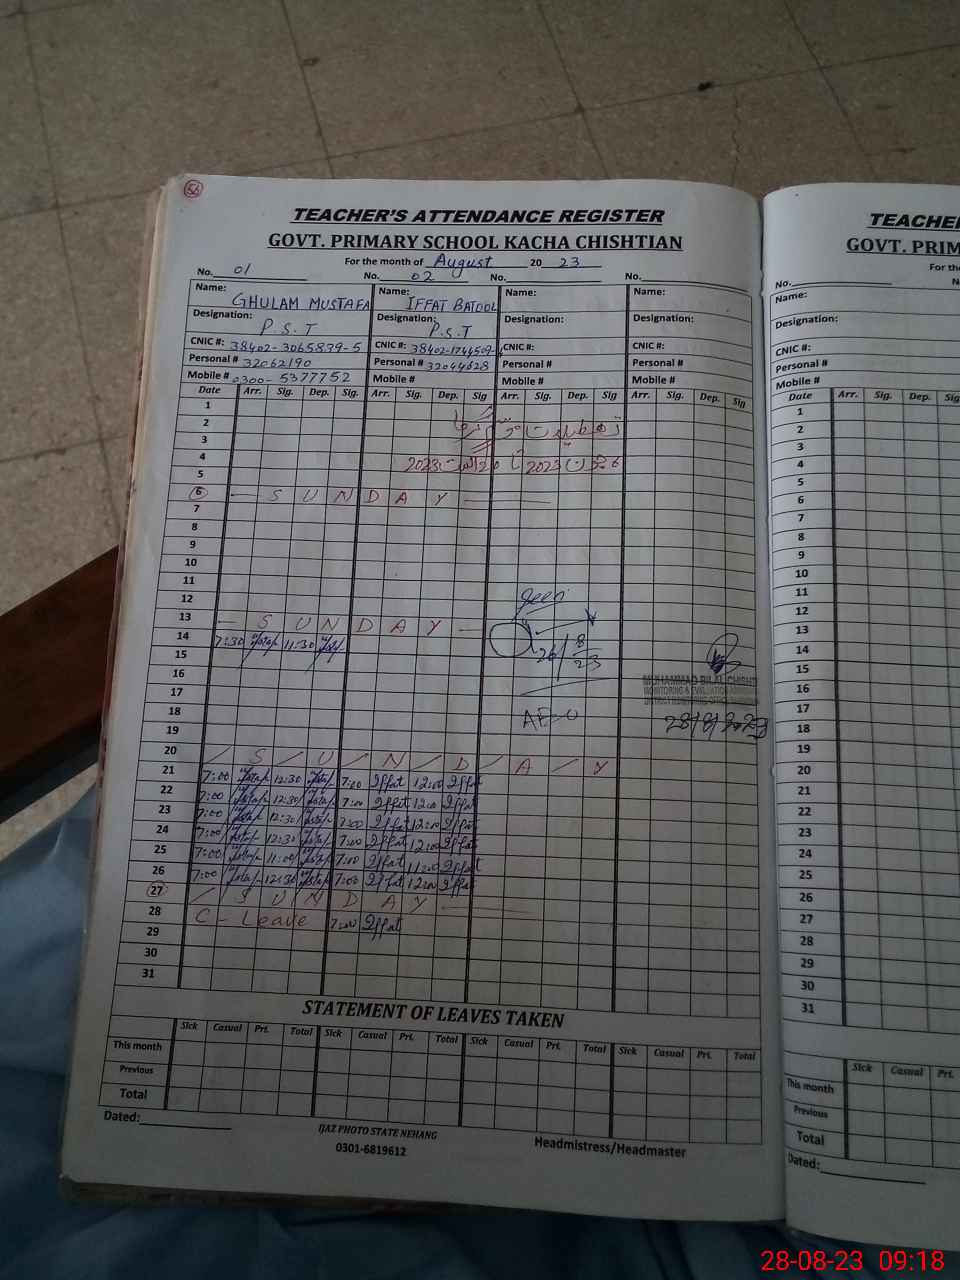 56
TEACHER'S ATTENDANCE REGISTER
GOVT. PRIMARY SCHOOL KACHA CHISHTIAN
For the month of August 2023
No. 01 No. 02 No. No.
Name: GHULAM MUSTAFA Name: IFFAT BATOOL Name: Name:
Designation: P.S.T Designation: P.S.T Designation: Designation:
CNIC #: 38402-3065839-5 CNIC #: 38402-1744509- CNIC #: CNIC #:
Personal # 32062190 Personal # 32044628 Personal # Personal #
Mobile # 0300-5377752 Mobile # Mobile # Mobile #
Date Arr. Sig. Dep. Sig. Arr. Sig. Dep. Sig Arr. Sig. Dep. Sig. Arr. Sig. Dep. Sig
1
2 تعطیلات موسم گرما
3
4 2023 تا 2023
5
6 — S U N D A Y —
7
8
9
10
11
12 Seen
13 — S U N D A Y —
14 7:30 11:30 26/8/23
15
16 MUHAMMAD BILAL CHISHTI
17 MONITORING & EVALUATION
18 AEO 28/8/2023
19
20 / S / U / N / D / A / Y
21 7:00 12:30 7:00 Iffat 12:00 Iffat
22 7:00 12:30 7:00 Iffat 12:00 Iffat
23 7:00 12:30 7:00 Iffat 12:00 Iffat
24 7:00 12:30 7:00 Iffat 12:00 Iffat
25 7:00 11:00 7:00 Iffat 11:00 Iffat
26 7:00 12:30 7:00 Iffat 12:00 Iffat
27 / S U N D A Y —
28 C - Leave 7:00 Iffat
29
30
31
STATEMENT OF LEAVES TAKEN
Sick Casual Pri. Total Sick Casual Pri. Total Sick Casual Pri. Total Sick Casual Pri. Total
This month
Previous
Total
Dated:
IJAZ PHOTO STATE NEHANG
0301-6819612
Headmistress/Headmaster
TEACHER
GOVT. PRIM
For the
No.
Name:
Designation:
CNIC #:
Personal #
Mobile #
Date Arr. Sig. Dep. Sig.
1
2
3
4
5
6
7
8
9
10
11
12
13
14
15
16
17
18
19
20
21
22
23
24
25
26
27
28
29
30
31
Sick Casual Pri.
This month
Previous
Total
Dated:
28-08-23 09:18